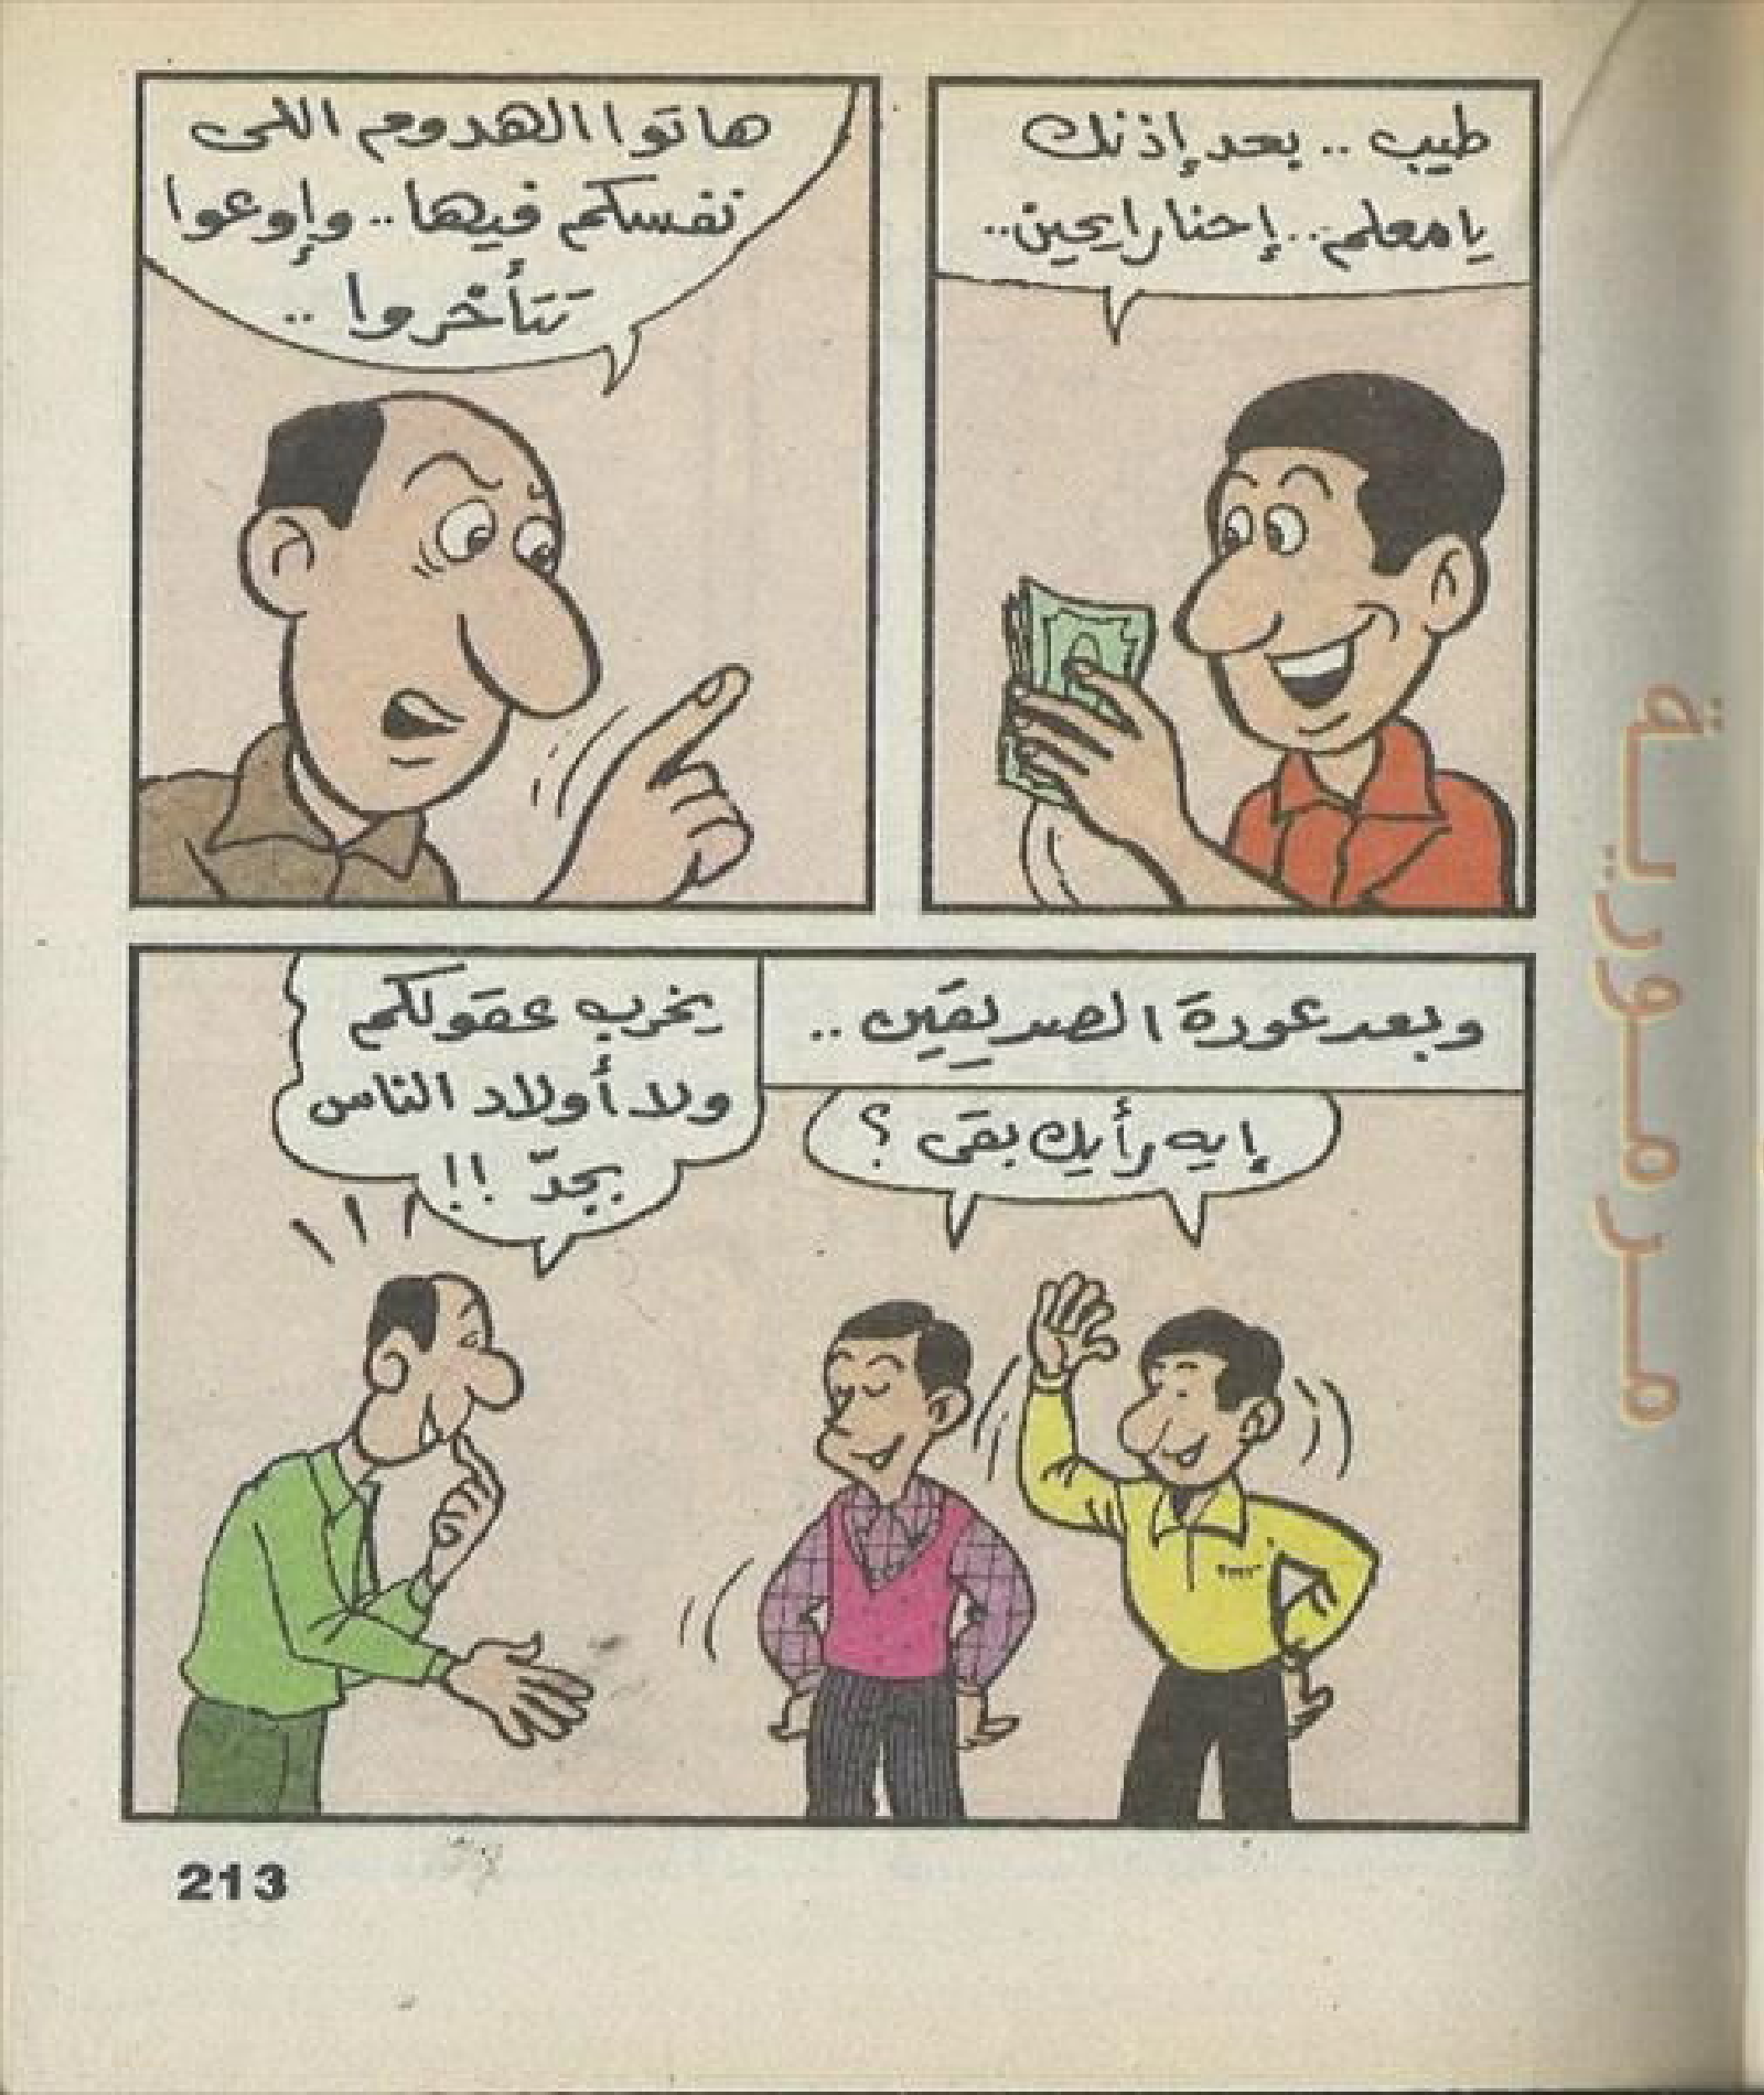 طيب .. بعد إذنك
يا معلم .. إحنا رايحين ..
هاتوا الهدوم اللى
نفسكم فيها .. وإوعوا
تتأخروا ..
وبعد عودة الصديقين ..
إيه رأيك بقى ؟
يخرب عقولكم
ولا أولاد الناس
بجدّ !!
مرمورية
213